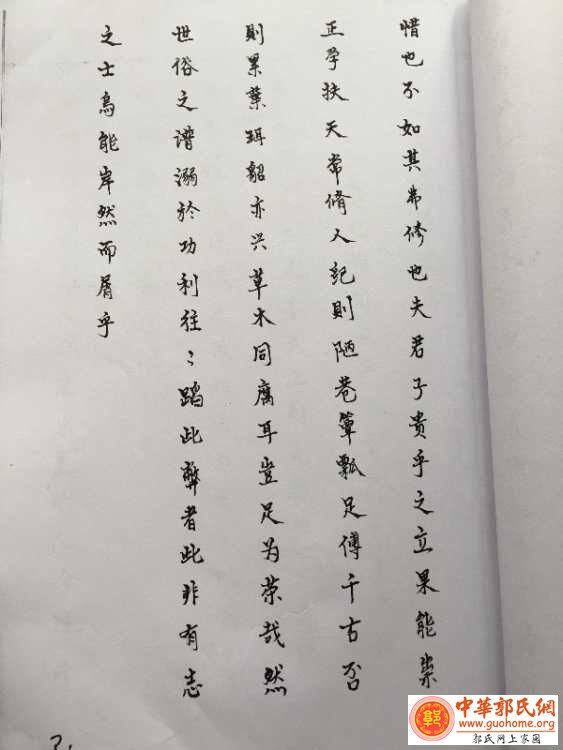 惜也不如其常修也夫君子贵乎之立果能崇
正孚扶天常脩人記則陋巷簞瓢足傳千古否
則累葉珥貂亦兴草木同腐耳豈足为荣哉然
世俗之譜溺於功利往〻蹈此弊者此非有志
之士烏能岸然而屑乎
2.
郭
中華郭氏網
www.guohome.org
郭氏网上家园